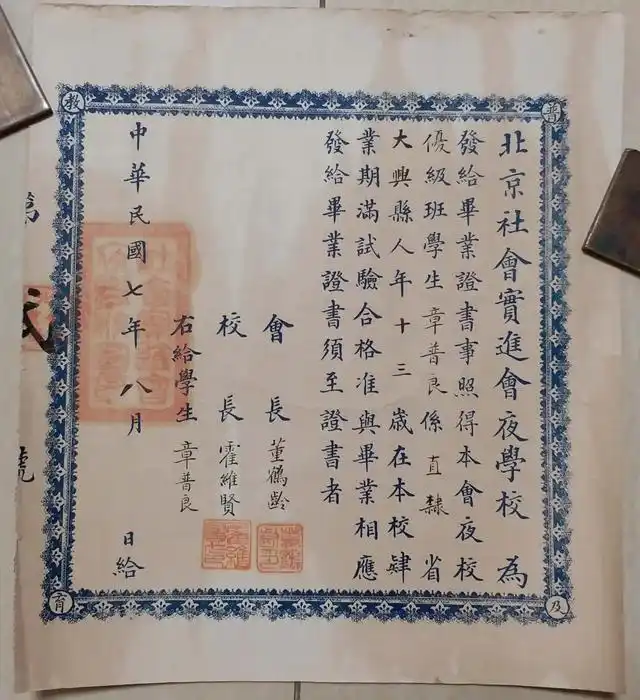 普及教育
北京社會實進會夜學校　為
發給畢業證書事照得本會夜校
優級班學生章普良係直隸省
大興縣人年十三歲在本校肄
業期滿試驗合格准與畢業相應
發給畢業證書須至證書者
會長董鶴齡
校長霍維賢
右給學生章普良
中華民國七年八月　日給
第
號